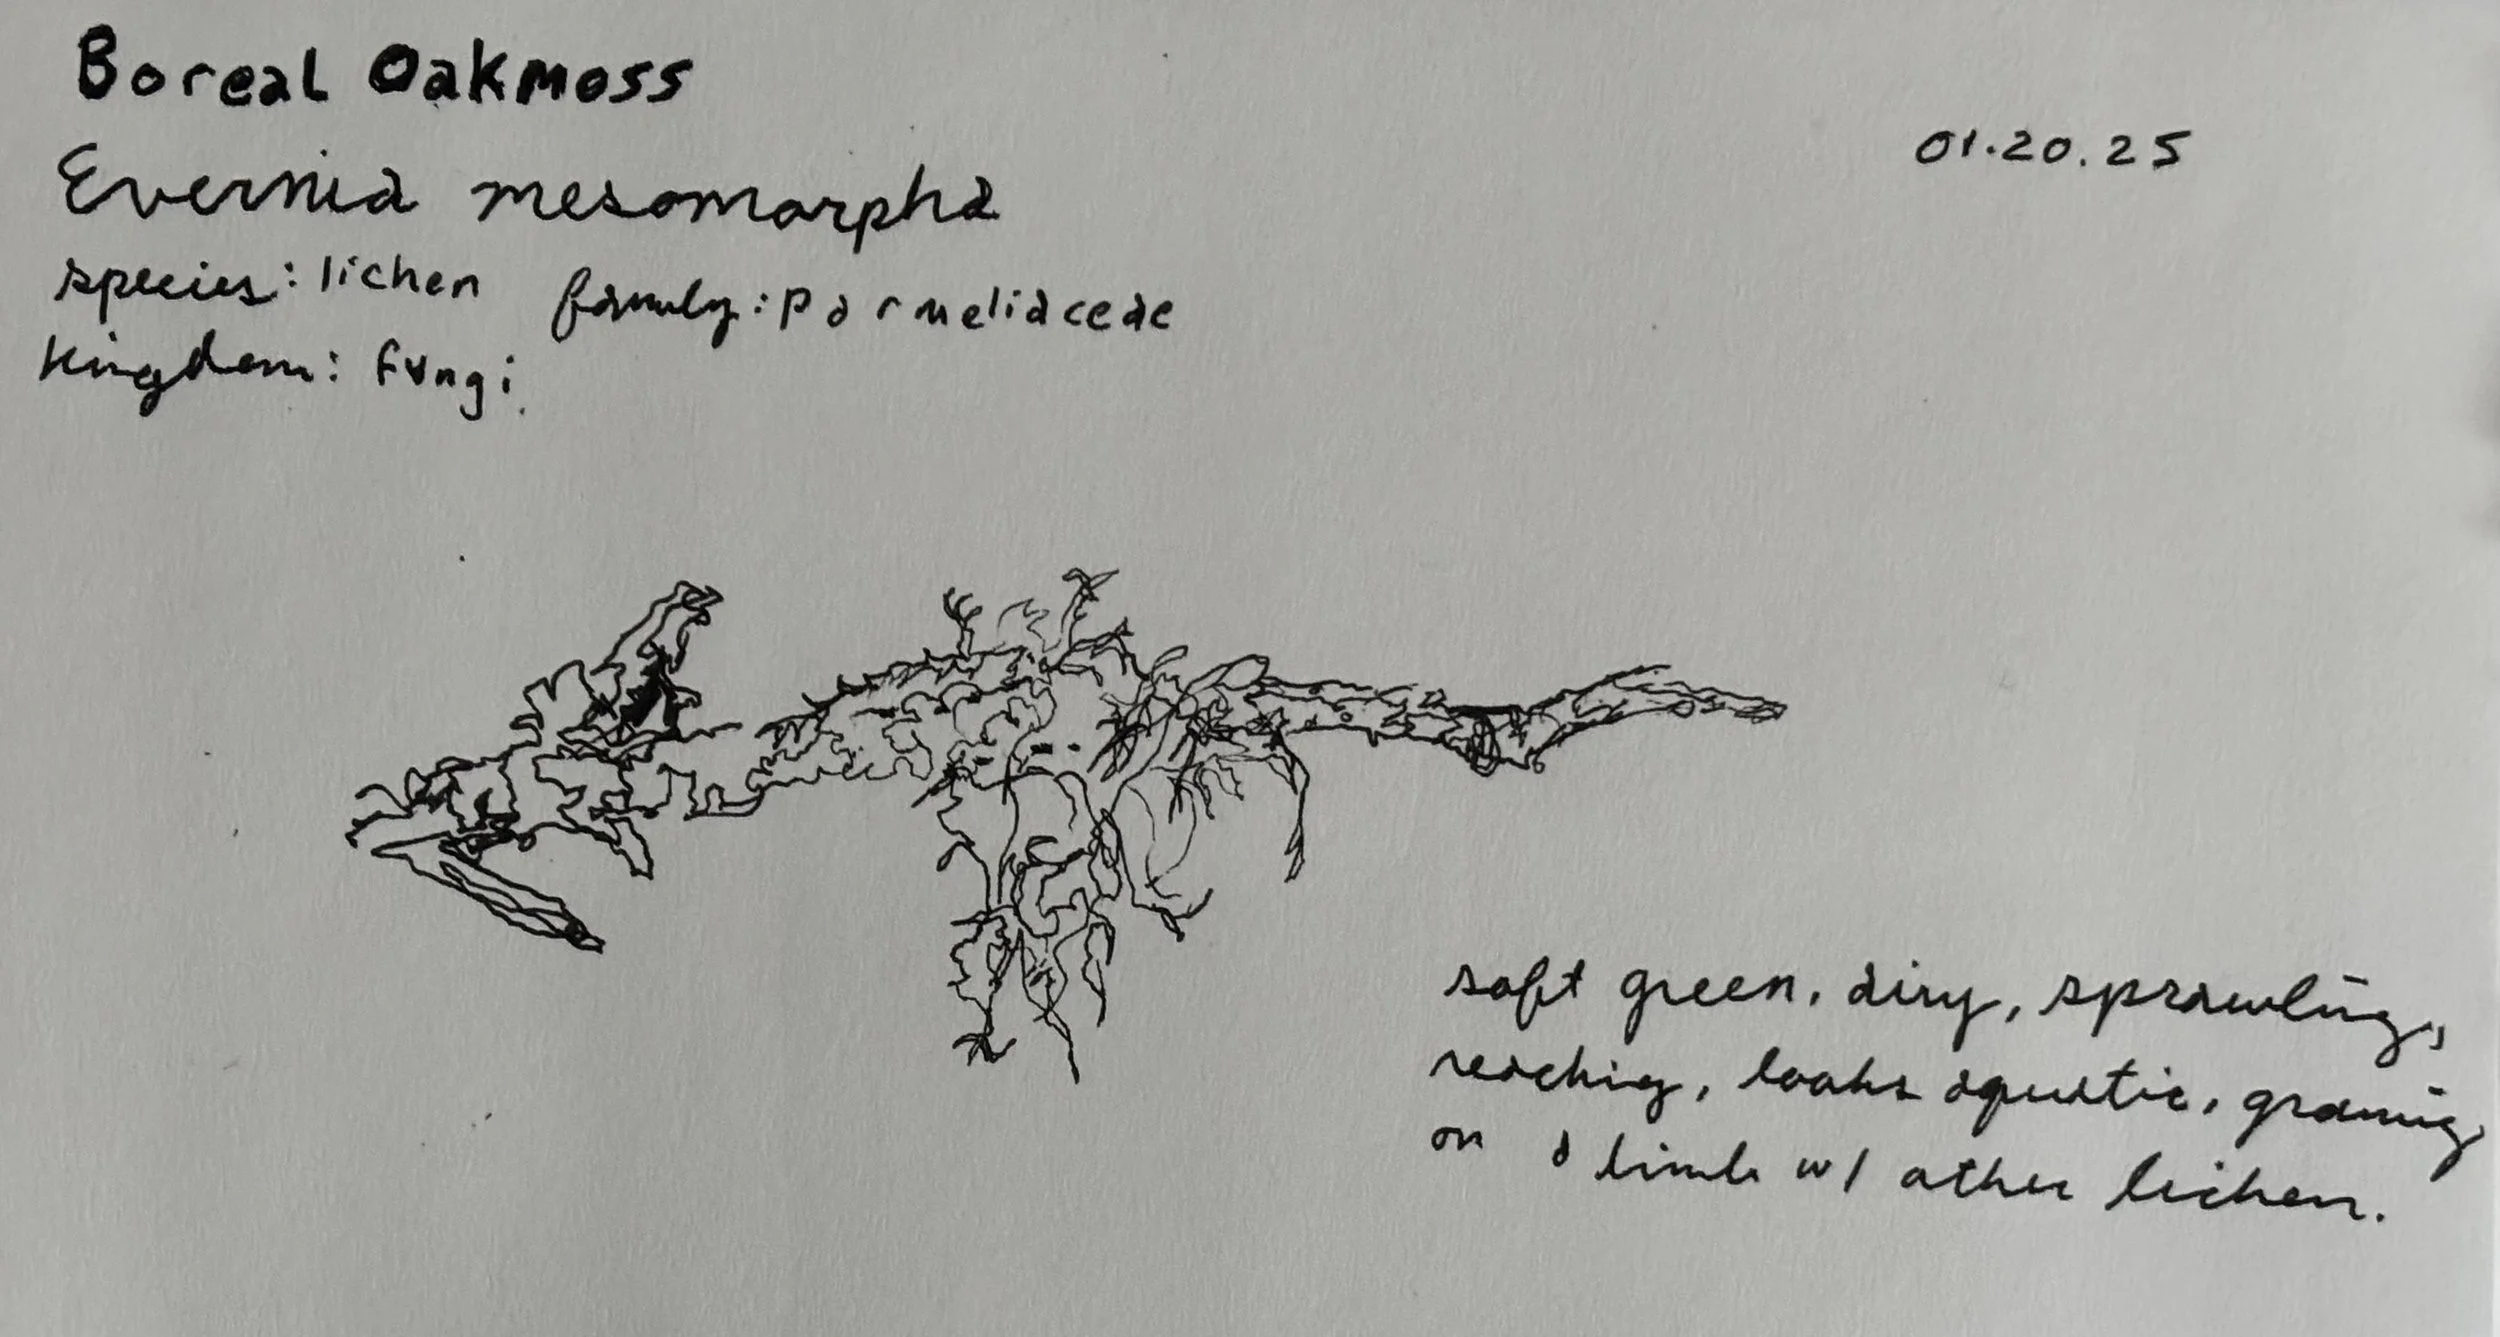 Boreal Oakmoss
01.20.25
Evernia mesomorpha
species: lichen family: Parmeliaceae
kingdom: fungi.
soft green, airy, sprawling,
reaching, looks aquatic, growing
on a limb w/ other lichen.